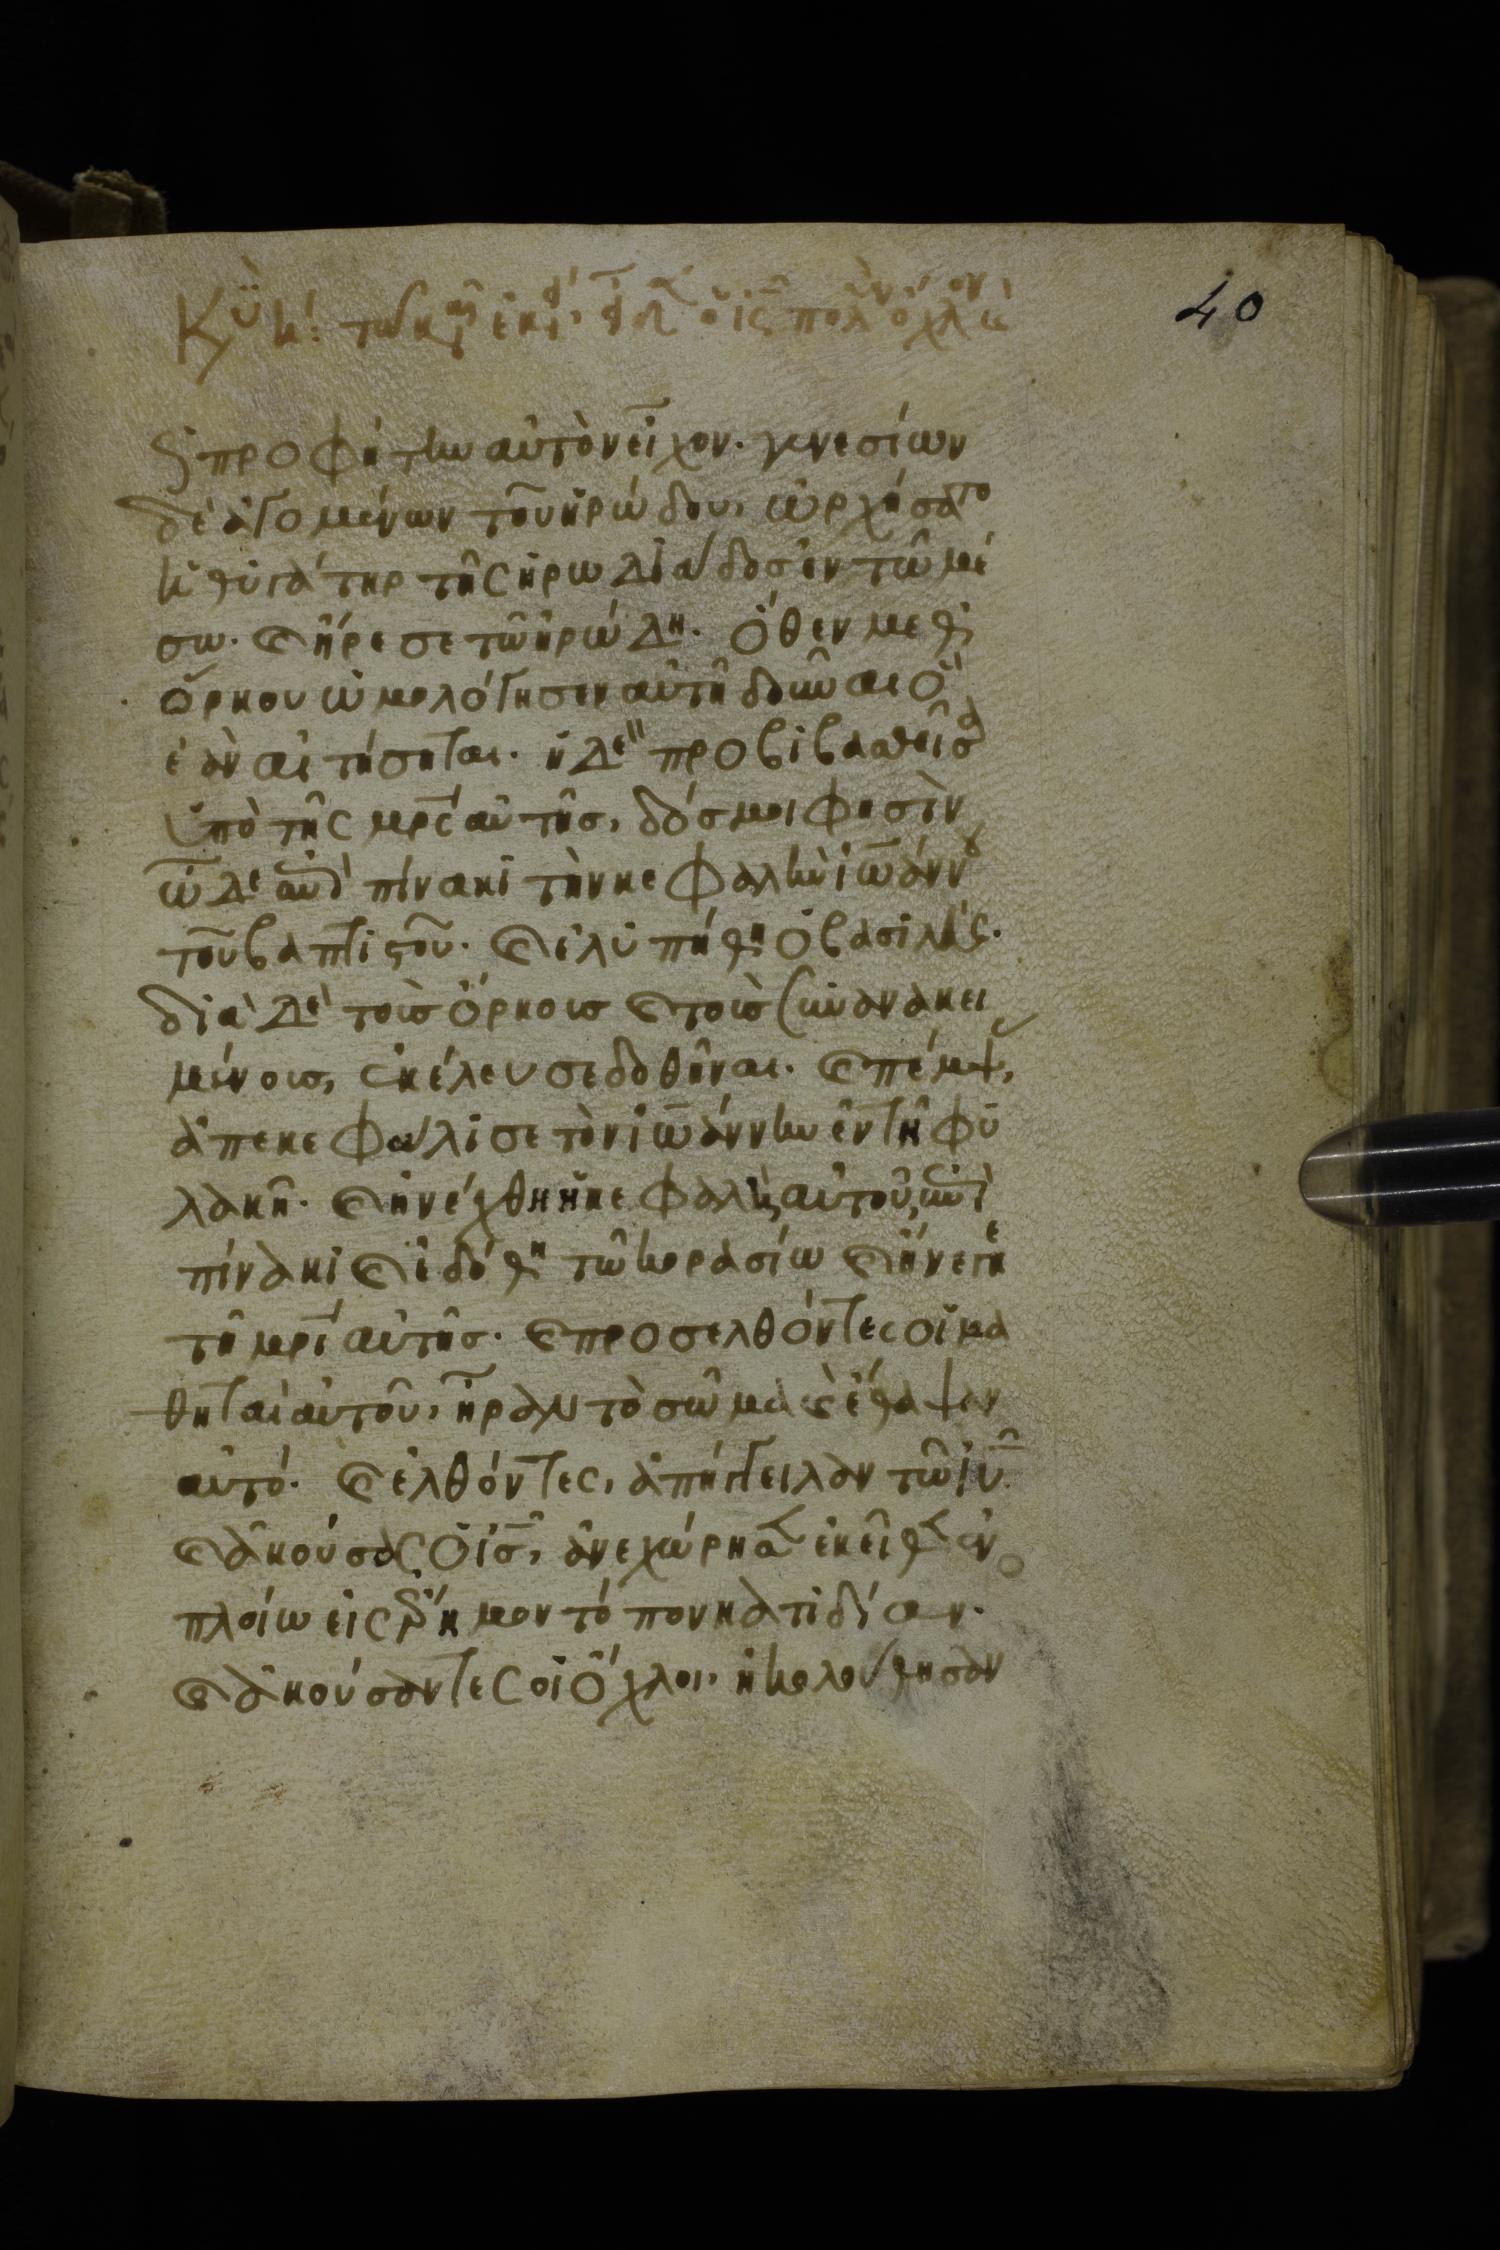 40
ὡς προφήτην αὐτὸν εἶχον. γενεσίων
δὲ ἀγομένων τοῦ ἡρώδου, ὠρχήσατο
ἡ θυγάτηρ τῆς ἡρωδιάδος ἐν τῷ μέ
σω. καὶ ἤρεσε τῶ ἡρώδη. ὅθεν μεθ
ὅρκου ὡμολόγησεν αὐτῆ δοῦναι ὃ
ἐὰν αἰτήσηται. ἡ δὲ προβιβασθεῖσα
ὑπὸ τῆς μρς αὐτῆς, δός μοι φησὶν
ὧδε ἐπὶ πίνακι τὴν κεφαλὴν ἰωάννου
τοῦ βαπτιστοῦ. καὶ ἐλυπήθη ὁ βασιλεύς.
διὰ δὲ τοὺς ὅρκους καὶ τοὺς συνανακει
μένους, ἐκέλευσε δοθῆναι. καὶ πέμψας,
ἀπεκεφάλισε τὸν ἰωάννην ἐν τῆ φυ
λακῆ. καὶ ἠνέχθη ἡ κεφαλὴ αὐτοῦ, ἐπὶ
πίνακι καὶ ἐδόθη τῶ κορασίω καὶ ἤνεγκε
τῆ μρι αὐτῆς. καὶ προσελθόντες οἱ μα
θηταὶ αὐτοῦ, ἦραν τὸ σῶμα καὶ ἔθαψαν
αὐτό. καὶ ἐλθόντες, ἀπήγγειλαν τῶ ιυ.
καὶ ἀκούσας ὁ ις, ἀνεχώρησεν ἐκεῖθεν ἐν
πλοίω εἰς ἔρημον τόπον κατιδίαν.
καὶ ἀκούσαντες οἱ ὄχλοι, ἠκολούθησαν